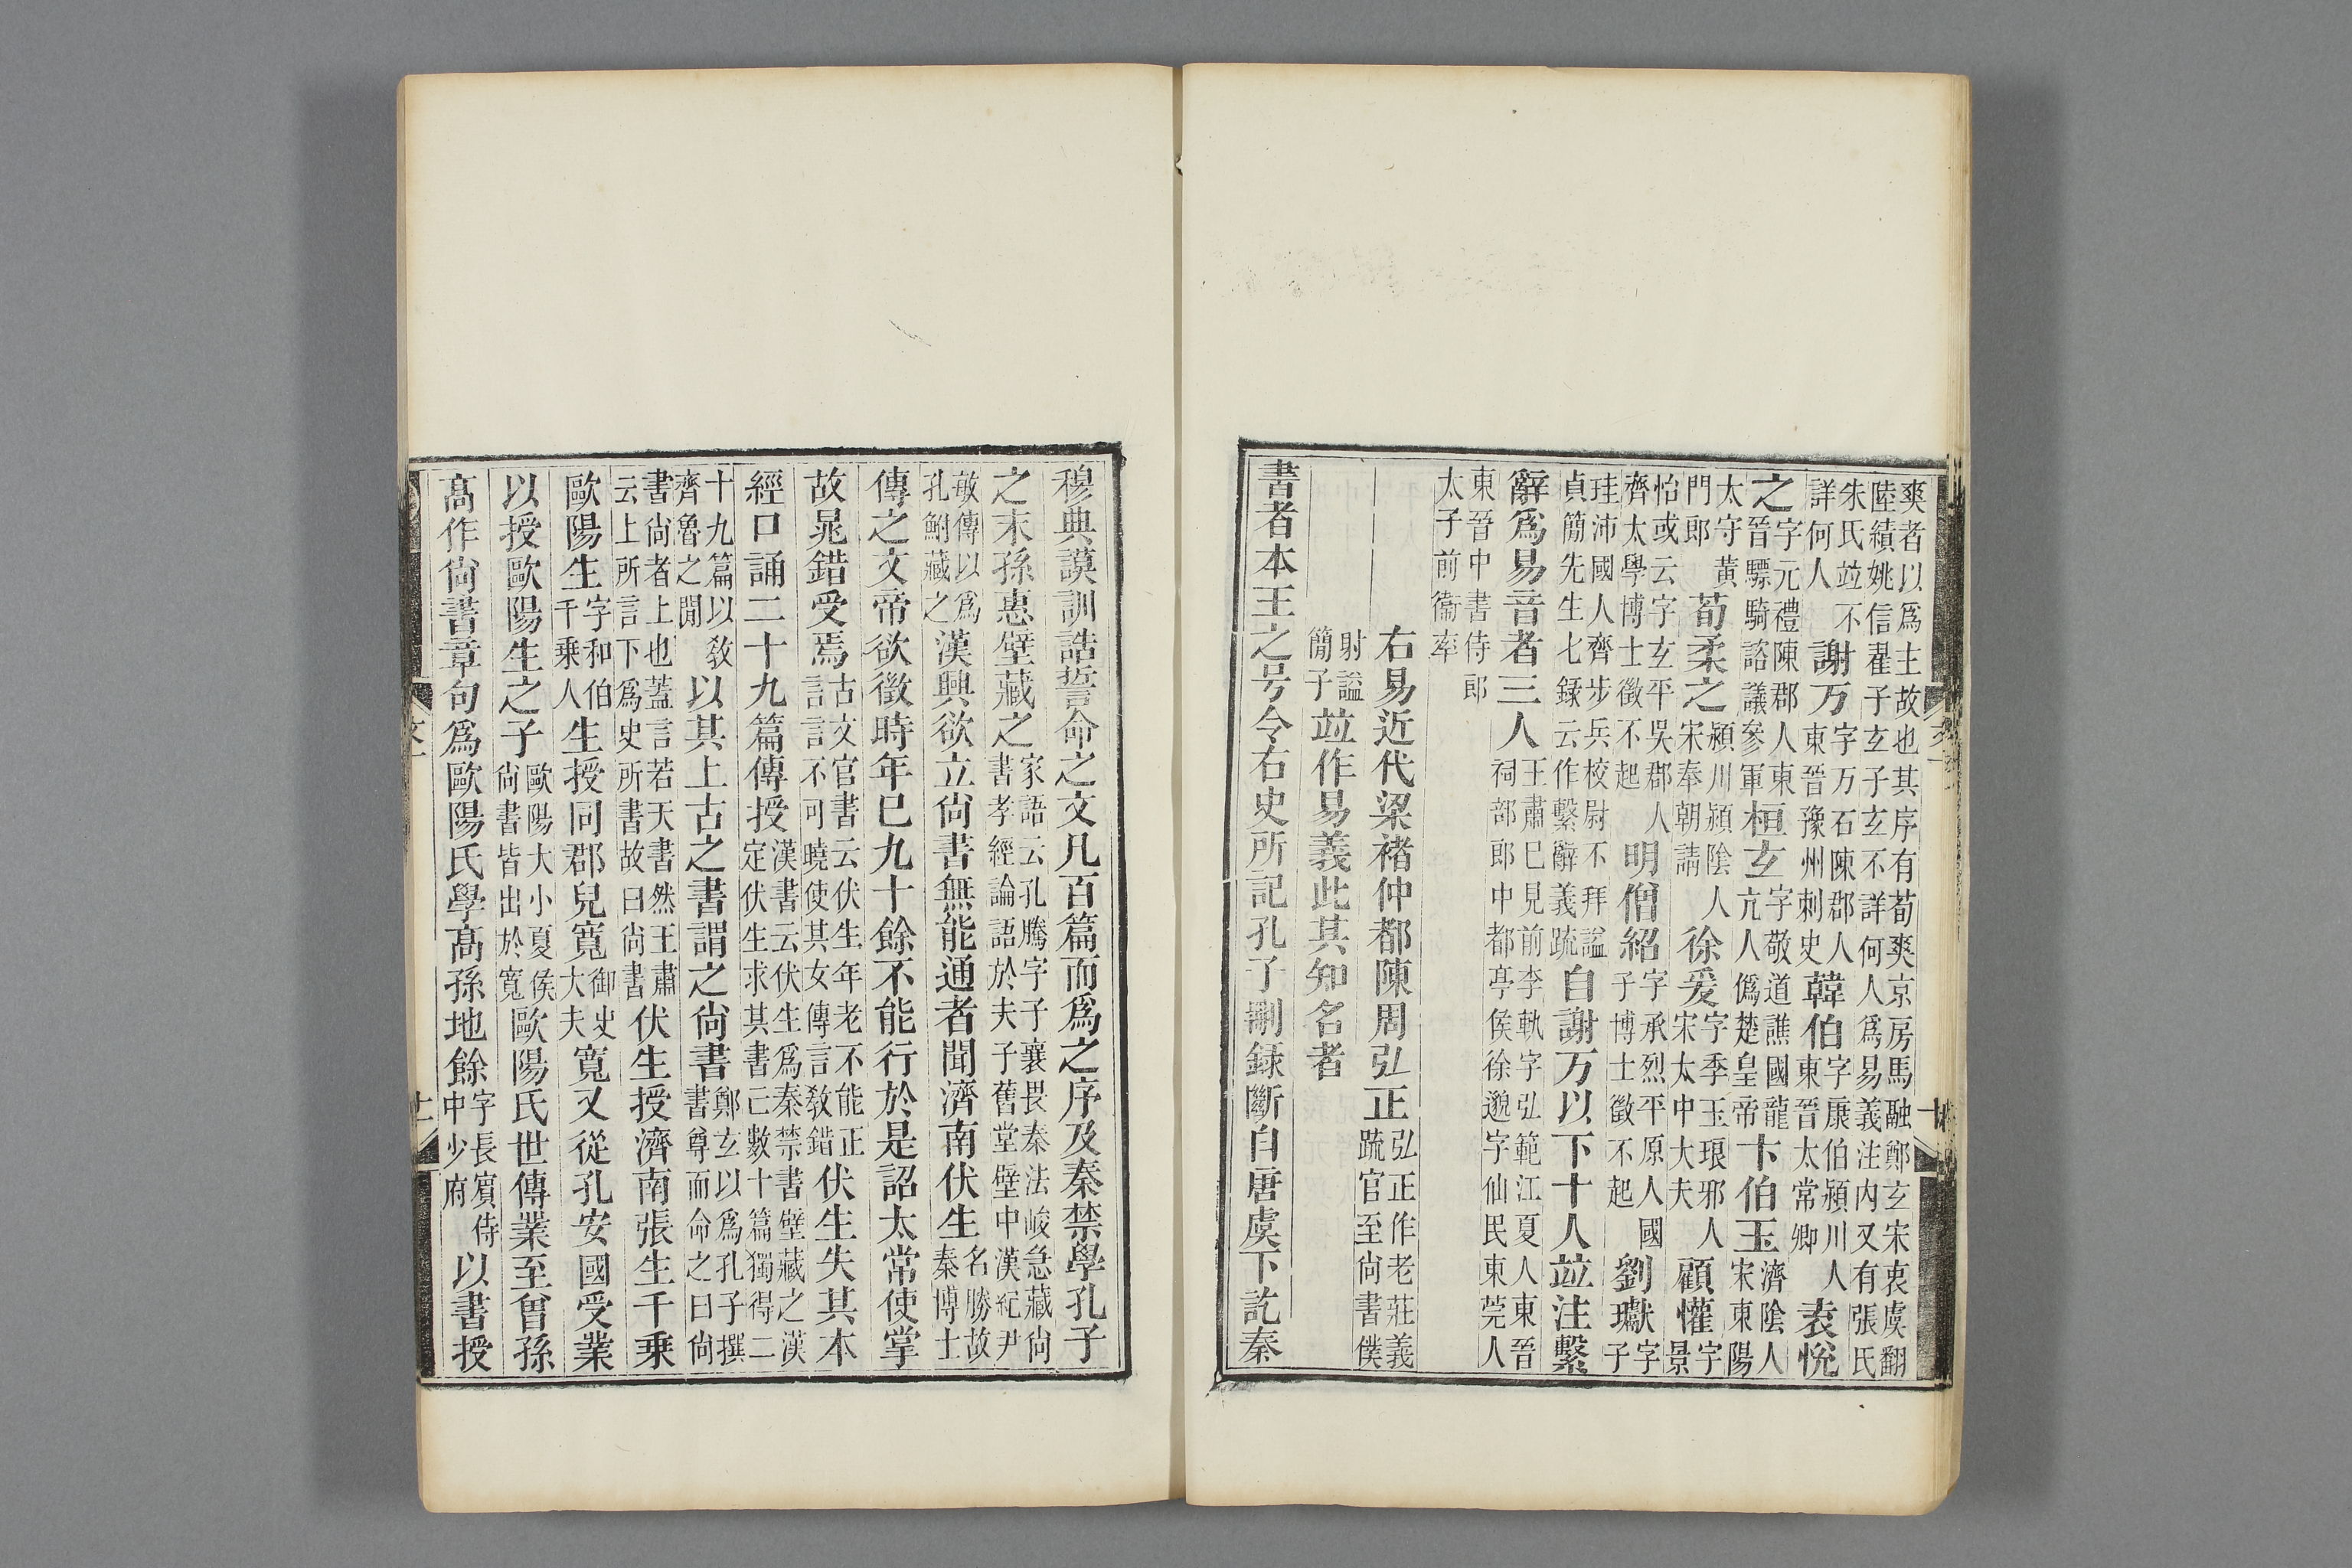 爽者以爲主故也其序有荀爽京房馬融鄭玄宋衷虞翻陸績姚信翟子玄子玄不詳何人爲易義注內又有張氏
朱氏竝不詳何人謝万字万石陳郡人東晉豫州刺史韓伯字康伯潁川人東晉太常卿袁悅
之字元禮陳郡人東晉驃騎諮議參軍桓玄字敬道譙國龍亢人僞楚皇帝卞伯玉濟陰人宋東陽
太守黃門郎荀柔之潁川潁陰人宋奉朝請徐爰字季玉琅邪人宋太中大夫顧懽字景
怡或云字玄平吳郡人齊太學博士徵不起明僧紹字承烈平原人國子博士徵不起劉瓛字子
珪沛國人齊步兵校尉不拜諡貞簡先生七録云作繫辭義疏自謝万以下十人竝注繫
辭爲易音者三人王肅巳見前李軌字弘範江夏人東晉祠部郎中都亭侯徐邈字仙民東莞人
東晉中書侍郎太子前衞率
右易近代梁褚仲都陳周弘正弘正作老莊義疏官至尚書僕
射諡簡子竝作易義此其知名者
書者本王之号令右史所記孔子刪録斷自唐虞下訖秦
穆典謨訓誥誓命之文凡百篇而爲之序及秦禁學孔子
之末孫惠壁藏之家語云孔騰字子襄畏秦法峻急藏尚書孝經論語於夫子舊堂壁中漢紀尹
敏傳以爲孔鮒藏之漢興欲立尚書無能通者聞濟南伏生名勝故秦博士
傳之文帝欲徵時年巳九十餘不能行於是詔太常使掌
故晁錯受焉古文官書云伏生年老不能正言言不可曉使其女傳言教錯伏生失其本
經口誦二十九篇傳授漢書云伏生爲秦禁書壁藏之漢定伏生求其書亡數十篇獨得二
十九篇以教齊魯之閒以其上古之書謂之尚書鄭玄以爲孔子撰書尊而命之曰尚
書尚者上也蓋言若天書然王肅云上所言下爲史所書故曰尚書伏生授濟南張生千乗
歐陽生字和伯千乗人生授同郡兒寬御史大夫寬又從孔安國受業
以授歐陽生之子歐陽大小夏侯尚書皆出於寬歐陽氏世傳業至曾孫
高作尚書章句爲歐陽氏學高孫地餘字長賓侍中少府以書授